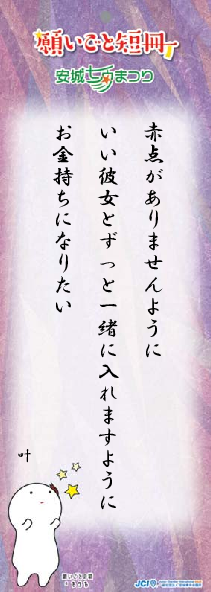 願いごと短冊
安城七夕まつり
赤点がありませんように
いい彼女とずっと一緒に入れますように
お金持ちになりたい
叶
JCI